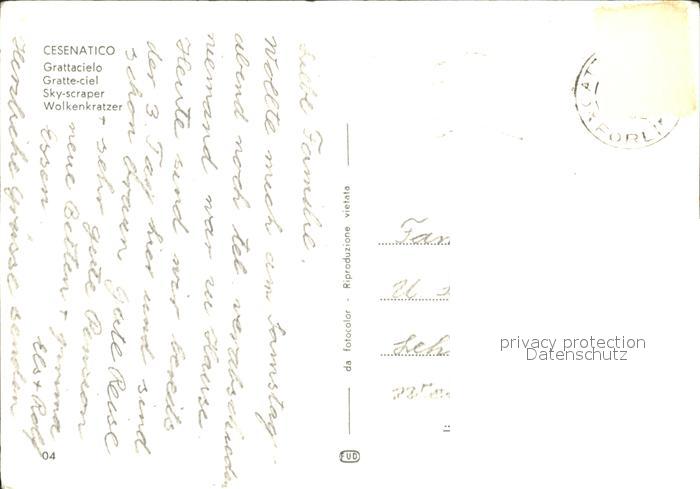 CESENATICO
Grattacielo
Gratte-ciel
Sky-scraper
Wolkenkratzer
Liebe Familie,
Wollte mich am Samstag-
abend noch tel. verabschieden
niemand war zu Hause.
Heute sind wir bereits
der 3. Tag hier und sind
schon braun Gute Reise
+ sehr gute Pension
neue Betten + prima
Essen.
Herzliche Grüsse senden
Els + Rolf
04
da fotocolor - Riproduzione vietata
FUD
FORLI
Fam
privacy protection
Datenschutz